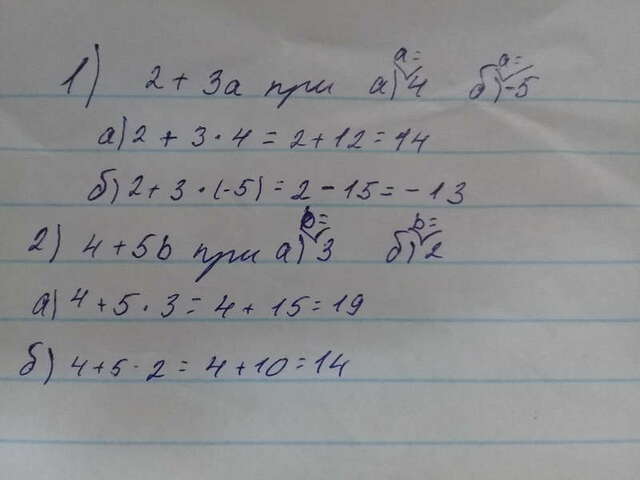 1) 2 + 3a при а) a= 4 б) a= -5
а) 2 + 3 · 4 = 2 + 12 = 14
б) 2 + 3 · (-5) = 2 - 15 = -13
2) 4 + 5b при а) b= 3 б) b= 2
а) 4 + 5 · 3 = 4 + 15 = 19
б) 4 + 5 · 2 = 4 + 10 = 14